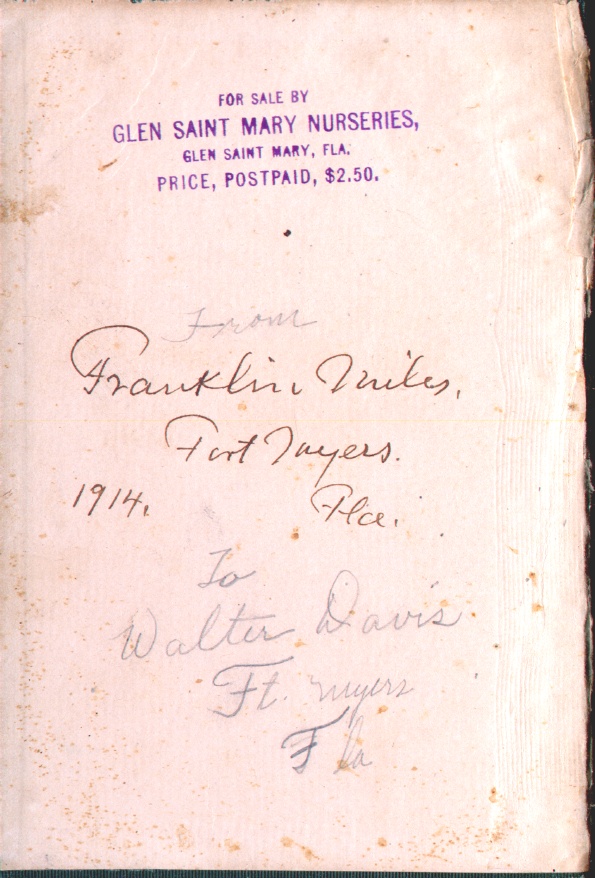 FOR SALE BY
GLEN SAINT MARY NURSERIES,
GLEN SAINT MARY, FLA.
PRICE, POSTPAID, $2.50.
From
Franklin Miles,
Fort Myers.
1914. Fla.
To
Walter Davis
Ft. Myers
Fla